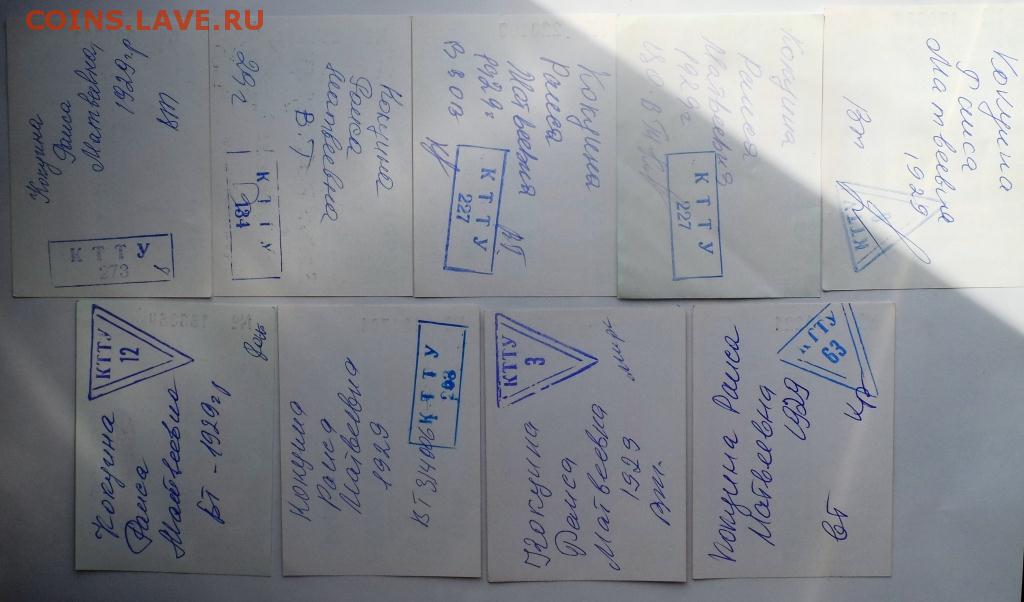 COINS.LAVE.RU
Кокунина
Раиса
Матвеевна,
1929гр
ВТ
К Т Т У
273
Кокунина
Раиса
Матвеевна
В.Т
29г
134
Кокунина
Раиса
Матвеевна
1929г
К Т Т У
227
Кокунина
Раиса
Матвеевна
1929г
К Т Т У
227
Кокунина
Раиса
Матвеевна
1929
Вт
КТТУ
КТТУ
12
Кокунина
Раиса
Матвеевна
ВТ - 1929гр
Кокунина
Раиса
Матвеевна
1929
К Т Т У
КТТУ
3
Кокунина
Раиса
Матвеевна
1929
Вт.
Кокунина Раиса
Матвеевна
1929
ВТ
63